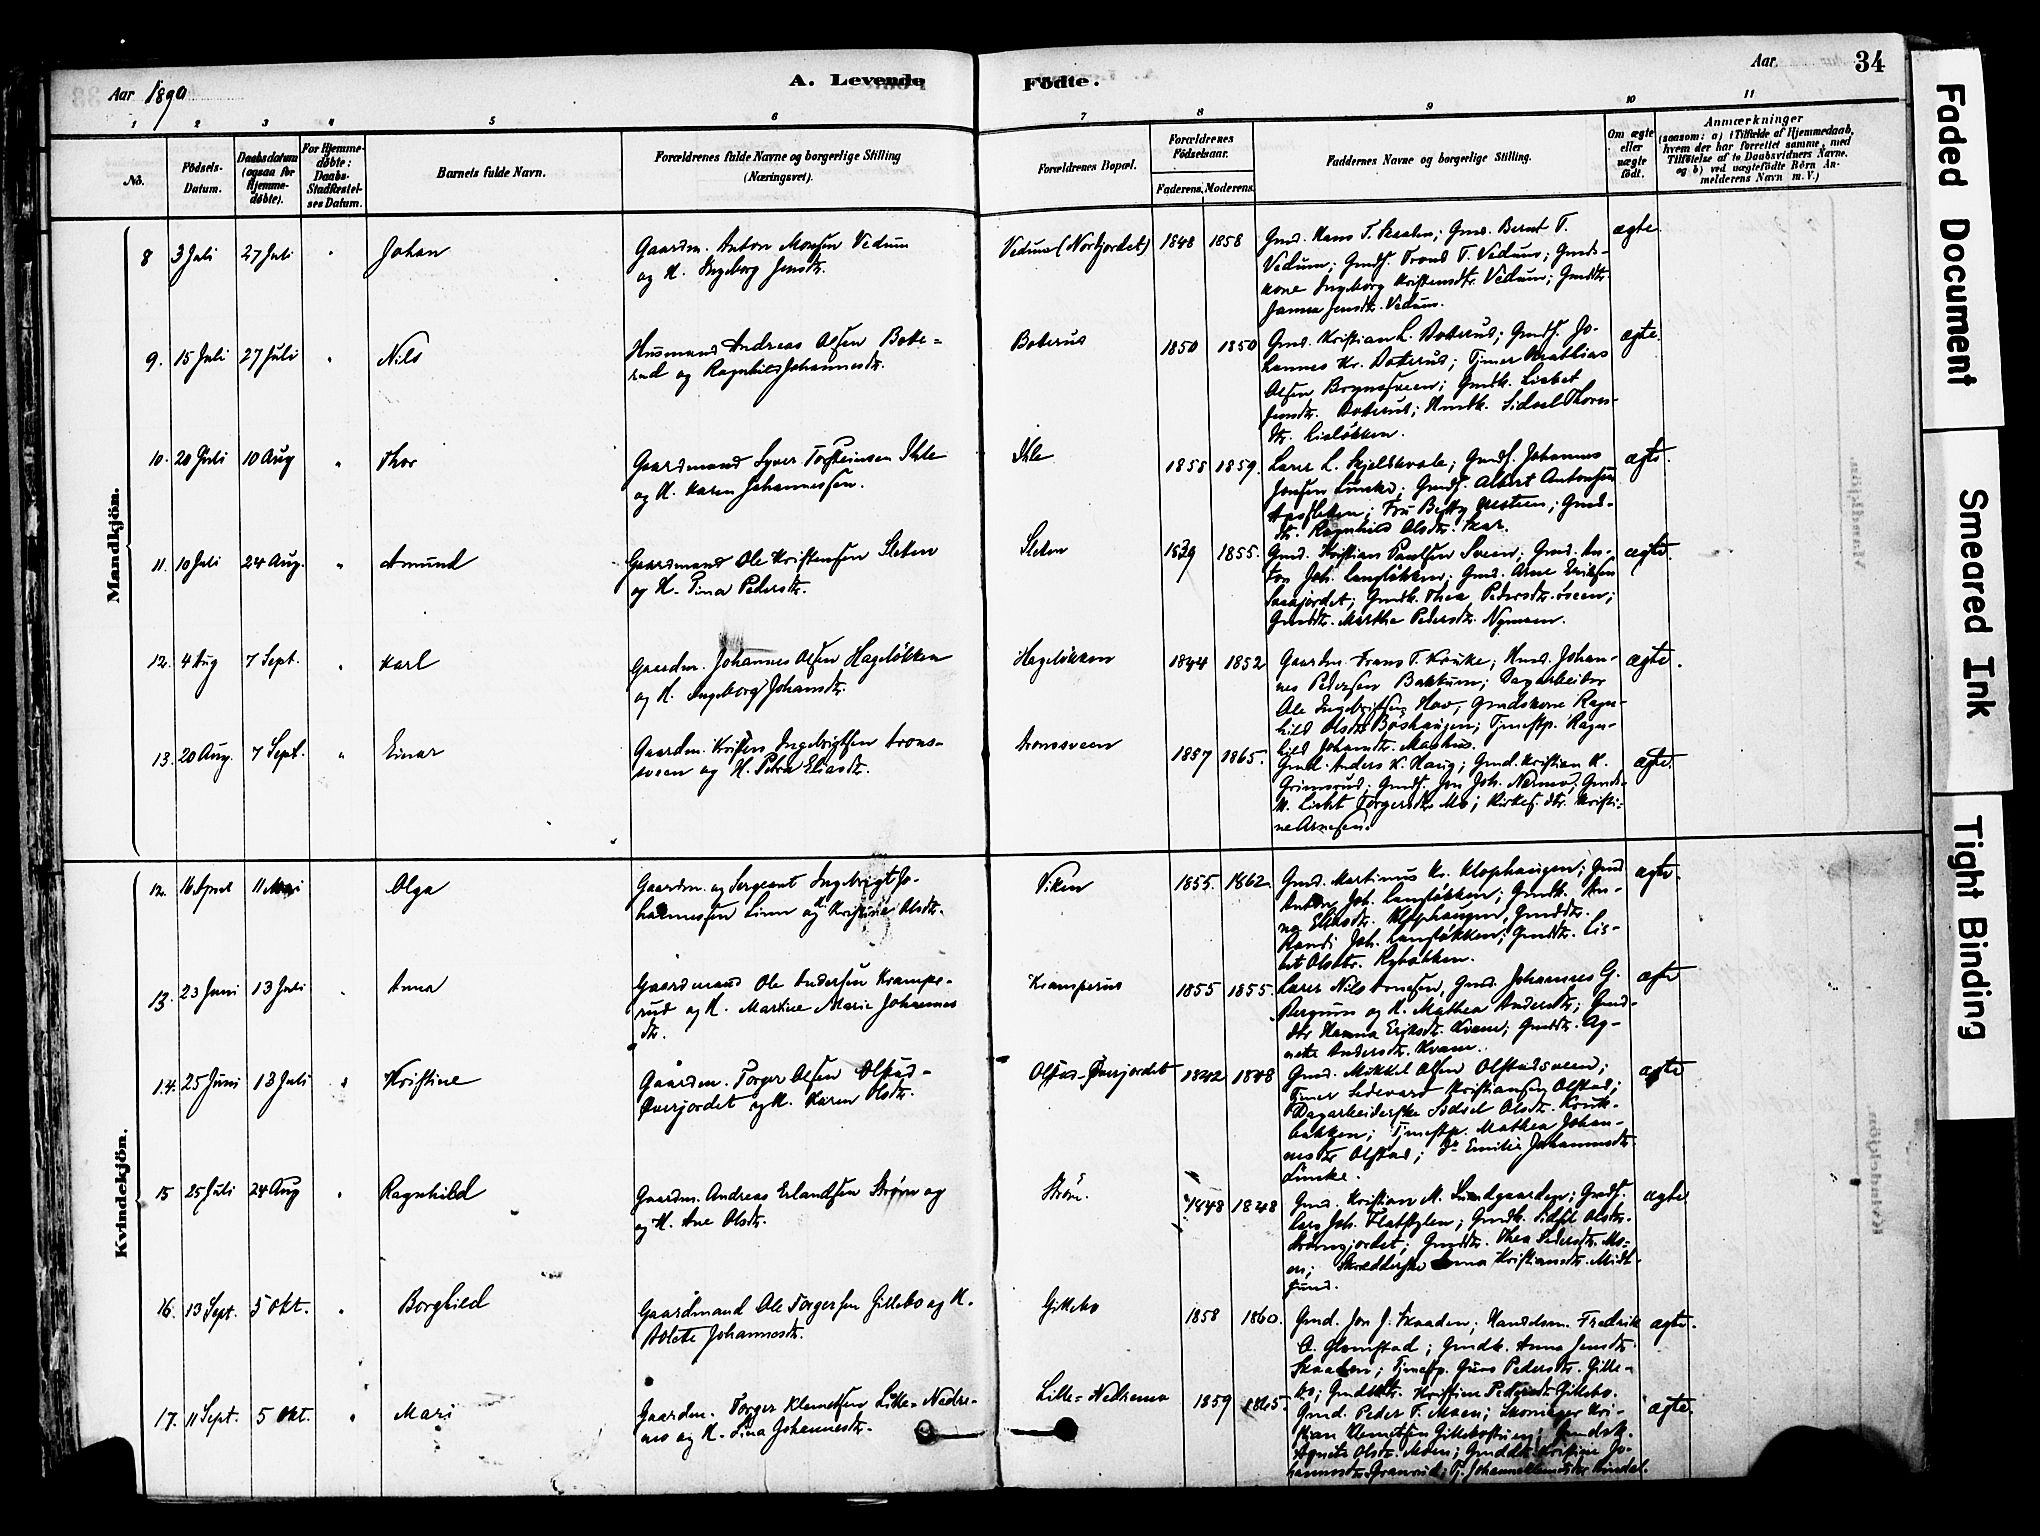 Aar 1890
A. Levende Födte.
Aar
34
1 2 3 4 5 6 7 8 9 10 11
No.
Födsels-
Datum.
Daabsdatum
(ogsaa for
Hjemme-
døbte).
For Hjemme-
døbte:
Daabs-
Stadfæstel-
ses Datum.
Barnets fulde Navn.
Forældrenes fulde Navne og borgerlige Stilling
(Næringsvei).
Forældrenes Bopæl.
Forældrenes
Födselsaar.
Faderens. Moderens.
Faddernes Navne og borgerlige Stilling.
Om ægte
eller
uægte
født.
Anmærkninger
(saasom: a) i Tilfælde af Hjemmedaab,
hvem der har forrettet samme, med
Tilføielse af to Daabsvidners Navne.
og b) ved uægtefödte Börn An-
melderens Navn m. V.)
Mandkjön.
8 3 Juli 27 Juli " Johan
Gaardm. Anton Monsen Vedum
og K. Ingeborg Jensdtr.
Vedum (Nordjordet) 1848 1858
Gmd. Hans T.
Gmd. Bernt T.
Vedum; Gmds. Trond T. Vedum; Gmds-
kone Ingeborg Kristensdtr. Vedum; Gmddtr.
Janna Jensdtr. Vedum.
ægte
9. 15 Juli 27 Juli " Nils
Husmand Andreas Olsen Bote-
rud og Ragnhild Johannesdtr.
Boterud 1850 1850
Gmd. Kristian L. Boterud; Gmds. Jo-
hannes Kr. Boterud; Tjener Mathias
Olsen Brynsveen; Gmdk. Lisbet
Jensdtr. Boterud; Hmdk. Sidsel Thores-
dtr. Lieløkken.
ægte.
10. 20 Juli 10 Aug " Thor
Gaardmand Syver Torsteinsen Ihle
og K. Karen Johannessen.
Ihle 1858 1859.
Lærer L. Skjelskvale; Gmds. Johannes
Jonsen Lunke; Gmds. Albert Antonsen
Fru Betty
Gmd-
dtr. Ragnhild Olsdtr. Skar.
ægte.
11. 10 Juli 24 Aug. " Amund
Gaardmand Ole Kristensen Sletten
og K. Tina Pedersdtr.
Sletten 1855.
Gmd. Kristian Paulsen Sveen; Gmd. An-
ton Joh. Langløkken; Gmd. Arne Eriksen
Gmdk. Thea Pedersdtr.
Gmddtr. Marthe Pedersdtr. Nymoen.
ægte.
12. 4 Aug 7 Sept. " Karl
Gaardm. Johannes Olsen Hageløkken
og K. Ingeborg Johansdtr.
Hageløkken 1844 1852
Gaardm. Frans T. Kruke; Hmd. Johan-
nes Pedersen Bakkum; Dagarbeider
Ole Ingebrigtsen Hov; Gmdskone Ragn-
hild Olsdtr. Böshaugen; Tjenestp. Ragn-
hild Johansdtr.
ægte.
13. 20 Aug. 7 Sept. " Einar
Gaardm. Kristen Ingebrigtsen Trons-
sveen og K. Petra Eliasdtr.
Tronssveen 1857 1865.
Gmd. Anders K. Haug; Gmd. Kristian K.
Grimsrud; Gmds. Jon Joh. Nermo; Gmds-
k. Lisbet Torgersdtr. Mo; Kirkes. dtr. Kristi-
ne Arnesen.
ægte.
Kvindekjön.
12. 16 April 11 Mai Olga
Gaardm. og Sergeant Ingebrigt Jo-
hannessen Linn og K. Kristine Olsdtr.
Viken 1855. 1862
Gmd. Martinus K. Klophaugen; Gmd
Anton Joh. Langløkken; Gmdk. An-
na Eliasdtr. Klophaugen, Gmddtr.
Randi Joh. Langløkken; Gmddtr. Lis-
bet Olsdtr.
ægte.
13. 23 Juni 13 Juli " Anna
Gaardmand Ole Andersen Krampe-
rud og K. Martine Marie Johannes
dtr.
Kramperud 1855 1855.
Lærer Nils Arnesen, Gmd. Johannes G.
Bergum og K. Mathea Andersdtr; Gmd-
dtr Hanna Eriksdtr. Kvam; Gmddtr. Ag-
nete Andersdtr. Kvam.
ægte
14. 25 Juni 13 Juli " Kristine
Gaardm. Torger Olsen Olstad-
Øverjordet og K. Karen Olsdtr.
Olstad-Øverjordet 1842 1848
Gmd. Mikkel Olsen Olstadsveen;
Tjener Sedevard Kristiansen Olstad;
Dagarbeiderske Sidsel Olsdtr. Kruk-
bakken; Tjenestp. Mathea Johan-
nesdtr Olstad; Do Emilie Johannesdtr.
Lunke.
ægte
15 25 Juli 24 Aug " Ragnhild
Gaardm. Andreas Erlandsen Strøm og
og K. Ane Olsdtr.
Strøm. 1848 1848
Gmd. Kristian M. Lundgaarden; Gmds.
Lars Joh. Flatstylen; Gmdk. Sidsel Olsdtr.
Strømsjordet; Gmddtr. Thea Pedersdtr. Mo-
en; Skrædderske Anna Kristiansdtr. Midt-
lund.
ægte
16. 13 Sept. 5 Okt. " Borghild
Gaardmand Ole Torgersen Gillebo og K.
Adete Johannesdtr.
Gillebo 1858 1860.
Gmd. Jon J. Skaaden; Handelsm. Fredrik
A. Glomstad; Gmdk. Anna Jensdtr.
Skaaden; Tjenestp. Guro Pedersdtr. Gille-
bo; Gmddtr. Kristine Pedersdtr. Gillebo.
ægte.
17. 11 Sept. 5 Okt. " Mari
Gaardm. Torger Klemetsen Lille-Nedre-
mo og K. Lina Johannesdtr.
Lille-Nedremo 1859 1865.
Gmd. Peder T. Moen; Skomager Kri-
stian Klemetsen Gillebostuen; Gmdsk.
Agnete Olsdtr. Moen; Gmddtr. Kristine Jo-
hannesdtr. Granrud;
ægte.
Faded Document
Smeared Ink
Tight Binding